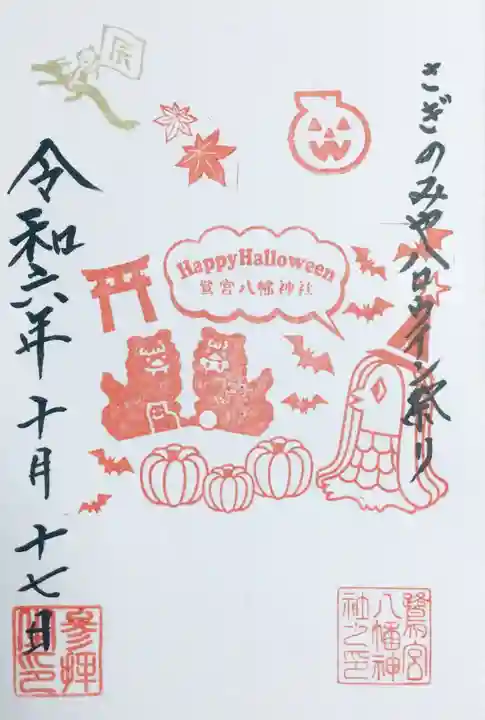 さぎのみやハロウィン祭り
辰
HappyHalloween
鷺宮八幡神社
令和六年十月十七日
鷺宮
八幡神
社之印
参拝